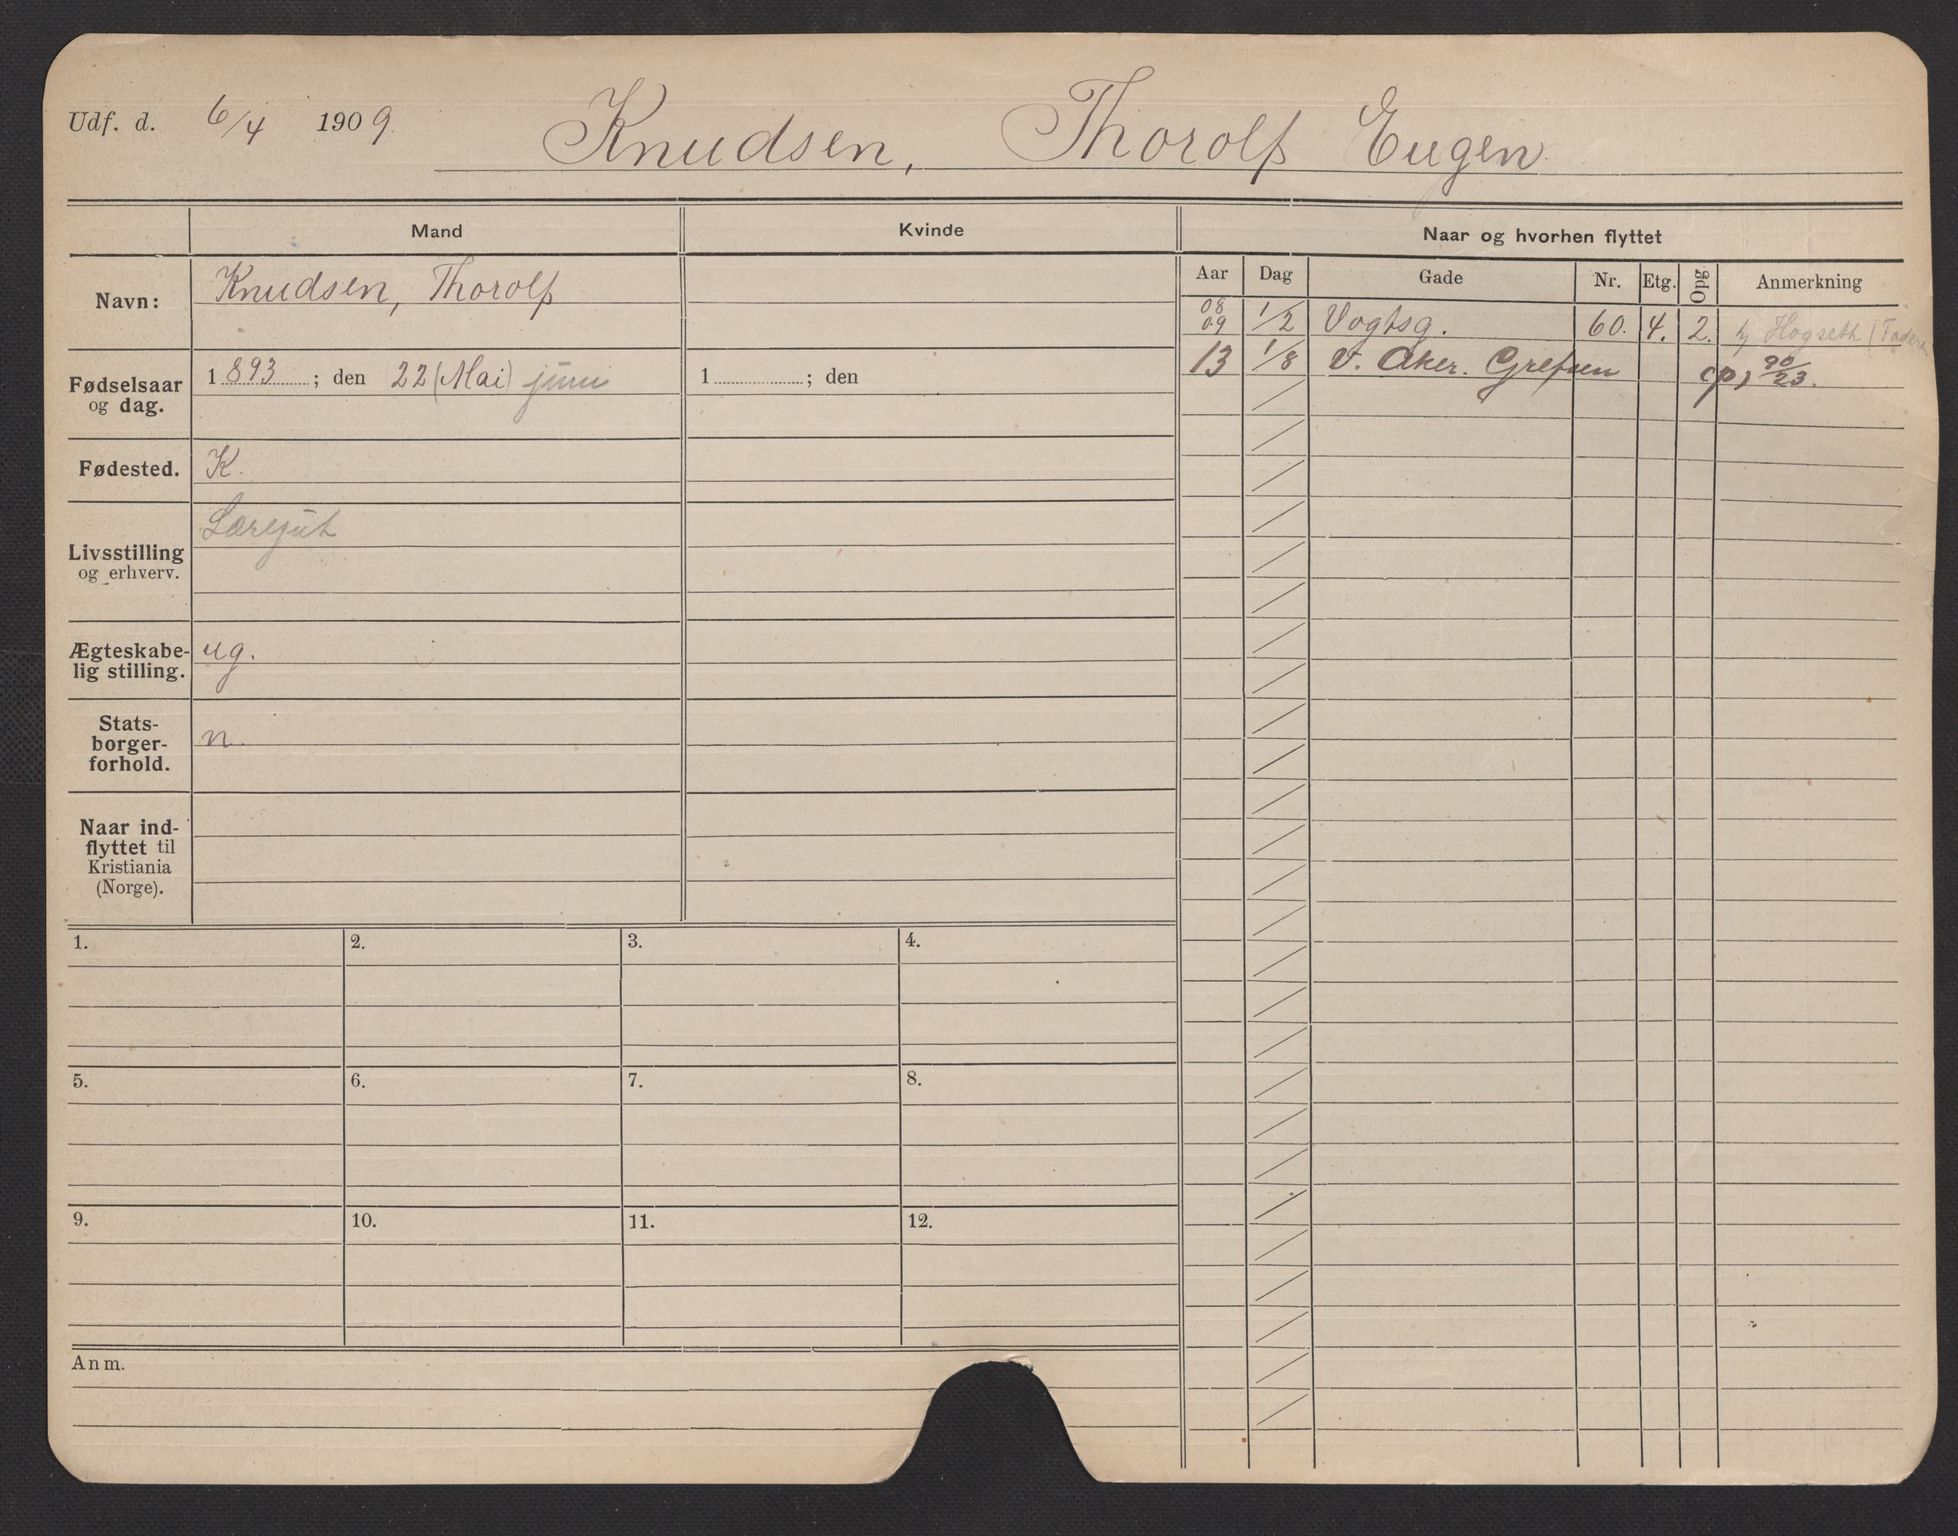 Udf. d. 6/4 1909. Knudsen, Thorolf Eugen
Mand Kvinde Naar og hvorhen flyttet
Aar Dag Gade Nr. Etg. Opg Anmerkning
Navn: Knudsen, Thorolf
08
09 1/2 Vogtsg. 60. 4. 2. Hogseth
13 1/8 V. Aker. Grefsen (p) 90/23.
Fødselsaar
og dag. 1893; den 22 (Mai) juni 1 ; den
Fødested. K.
Livsstilling
og erhverv. Læregut
Ægteskabe-
lig stilling. ug.
Stats-
borger-
forhold. n.
Naar ind-
flyttet til
Kristiania
(Norge).
1. 2. 3. 4.
5. 6. 7. 8.
9. 10. 11. 12.
Anm.